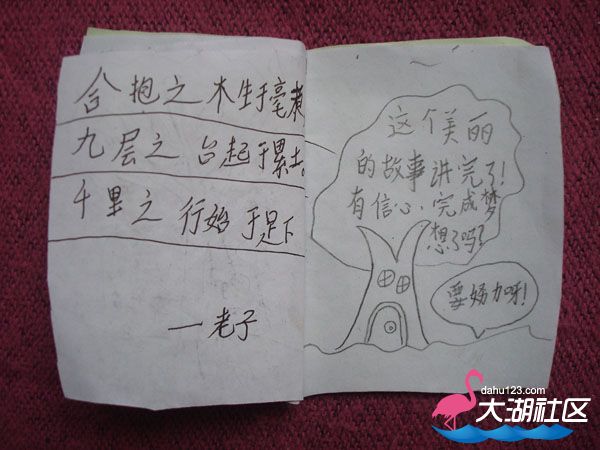 合抱之木生于毫末
九层之台起于累土。
千里之行始于足下
—老子
这个美丽
的故事讲完了!
有信心,完成梦
想了吗?
要努力呀!
dahu123.com
大湖社区